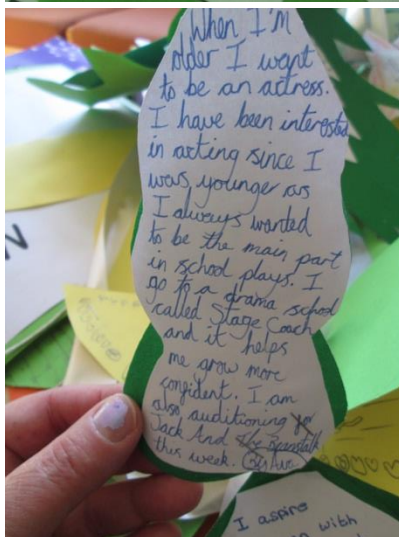 When I'm
older I want
to be an actress.
I have been interested
in acting since I
was younger as
I always wanted
to be the main part
in school plays. I
go to a drama school
called Stage Coach
and it helps
me grow more
confident. I am
also auditioning for
Jack And The Beanstalk
this week.
I aspire
with
N